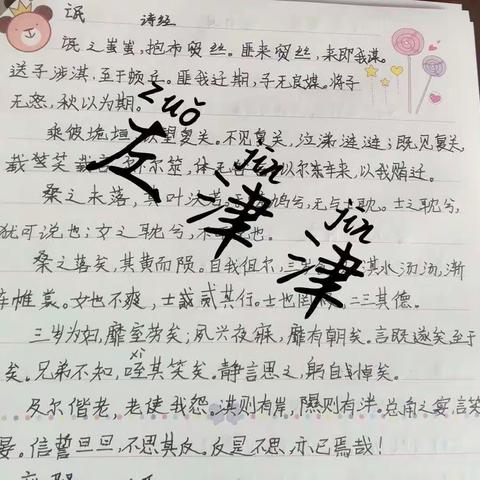 氓 诗经
氓之蚩蚩,抱布贸丝。匪来贸丝,来即我谋。
送子涉淇,至于顿丘。匪我迁期,子无良媒。将子
无怒,秋以为期。
zuǒ jīn jīn
左津津
乘彼垝垣,望复关。不见复关,泣涕涟涟;既见复关,
载笑载尔筮,体无以尔车来,以我贿迁。
桑之未落,其叶沃若。鸠兮,无与士耽。士之耽兮,
犹可说也;女之耽兮,不也。
桑之落矣,其黄而陨。自我徂尔,三岁淇水汤汤,渐
车帷裳。女也不爽,士贰其行。士也罔二三其德。
三岁为妇,靡室劳矣;夙兴夜寐,靡有朝矣。言既遂矣至于
xì
矣。兄弟不知,咥其笑矣。静言思之,躬自悼矣。
及尔偕老,老使我怨。淇则有岸,隰则有泮。总角之宴言笑
晏。信誓旦旦,不思其反。反是不思,亦已焉哉!